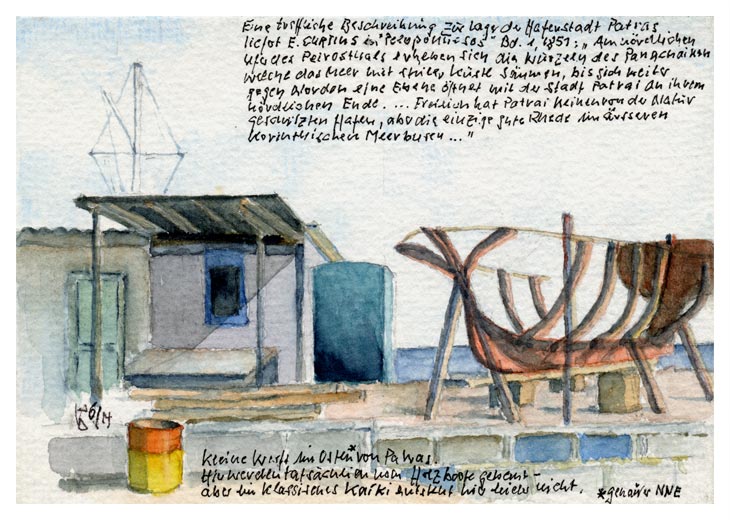 Eine treffliche Beschreibung zur Lage der Hafenstadt Patras
liefert E. CURTIUS in "Peloponnesos" Bd. 1, 1851: „Am nördlichen
Ufer des Peirosthals erheben sich die Wurzeln des Panachaikon
welche das Meer mit steiler Küste säumen, bis sich weiter
gegen Norden eine Ebene öffnet mit der Stadt Patrai an ihrem
nördlichen Ende. ... Freilich hat Patrai keinen von der Natur
geschützten Hafen, aber die einzige gute Rhede im äusseren
Korinthischen Meerbusen ..."
6/14
Kleine Werft im Osten* von Patras.
Hier werden tatsächlich noch Holzboote gebaut -
aber ein klassisches Kaiki entsteht hier leider nicht.
*genauer NNE